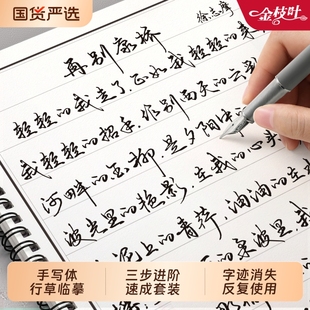 国货严选
金枝叶
再别康桥
徐志摩
轻轻的我走了，正如我轻轻的来
我轻轻的招手，作别西天的云彩
河畔的金柳，是夕阳中的
波光里的艳影，在我的心头
泥上的青荇，油油的在
手写体
行草临摹
三步进阶
速成套装
字迹消失
反复使用